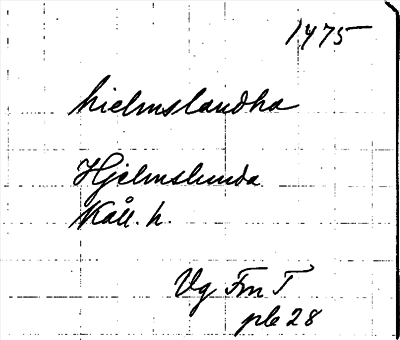 1475
hielmslandha
Hjelmslunda
Kåll. h.
Vg Fm T
ple 28